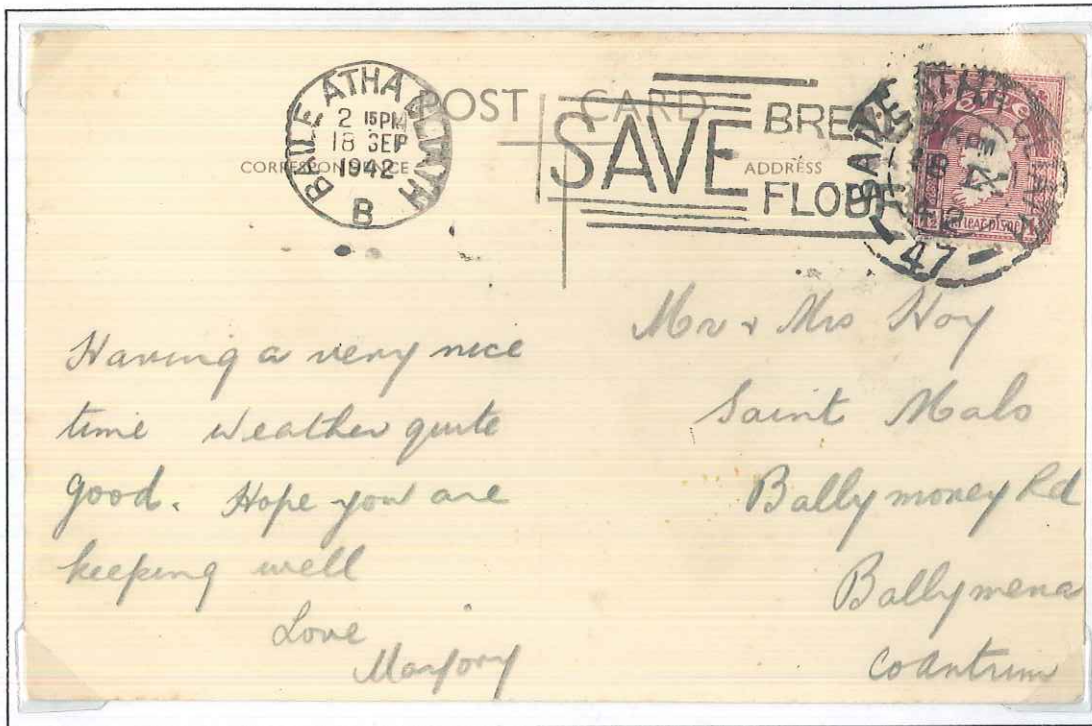 BAILE ATHA CLIATH
2 15PM
18 SEP
1942
B
POST CARD
SAVE
BRE
FLOUR
CORRESPONDENCE
ADDRESS
47
Having a very nice
time Weather quite
good. Hope you are
keeping well
Love
Marjory
Mr & Mrs Hoy
Saint Malo
Ballymoney Rd
Ballymena
Co Antrim